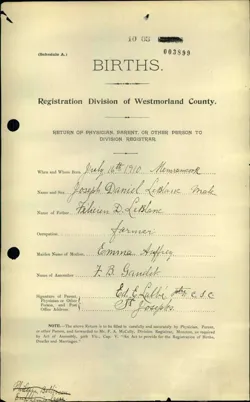 10
(Schedule A.)
002889
BIRTHS.
Registration Division of Westmorland County.
RETURN OF PHYSICIAN, PARENT, OR OTHER PERSON TO
DIVISION REGISTRAR.
When and Where Born July 16th 1910, Memramcook
Name and Sex Joseph Daniel LeBlanc Male
Name of Father D. LeBlanc
Occupation farmer
Maiden Name of Mother Emma
Name of Accoucheur F. B. Gaudet
Signature of Parent,
Physician or Other
Person, and Post
Office Address
Ed. C.S.C
St Joseph
NOTE.—The above Return is to be filled in carefully and accurately by Physician, Parent,
or other Person, and forwarded to Mr. F. A. McCully, Division Registrar, Moncton, as required
by Act of Assembly, 50th Vic., Cap. V: "An Act to provide for the Registration of Births,
Deaths and Marriages."